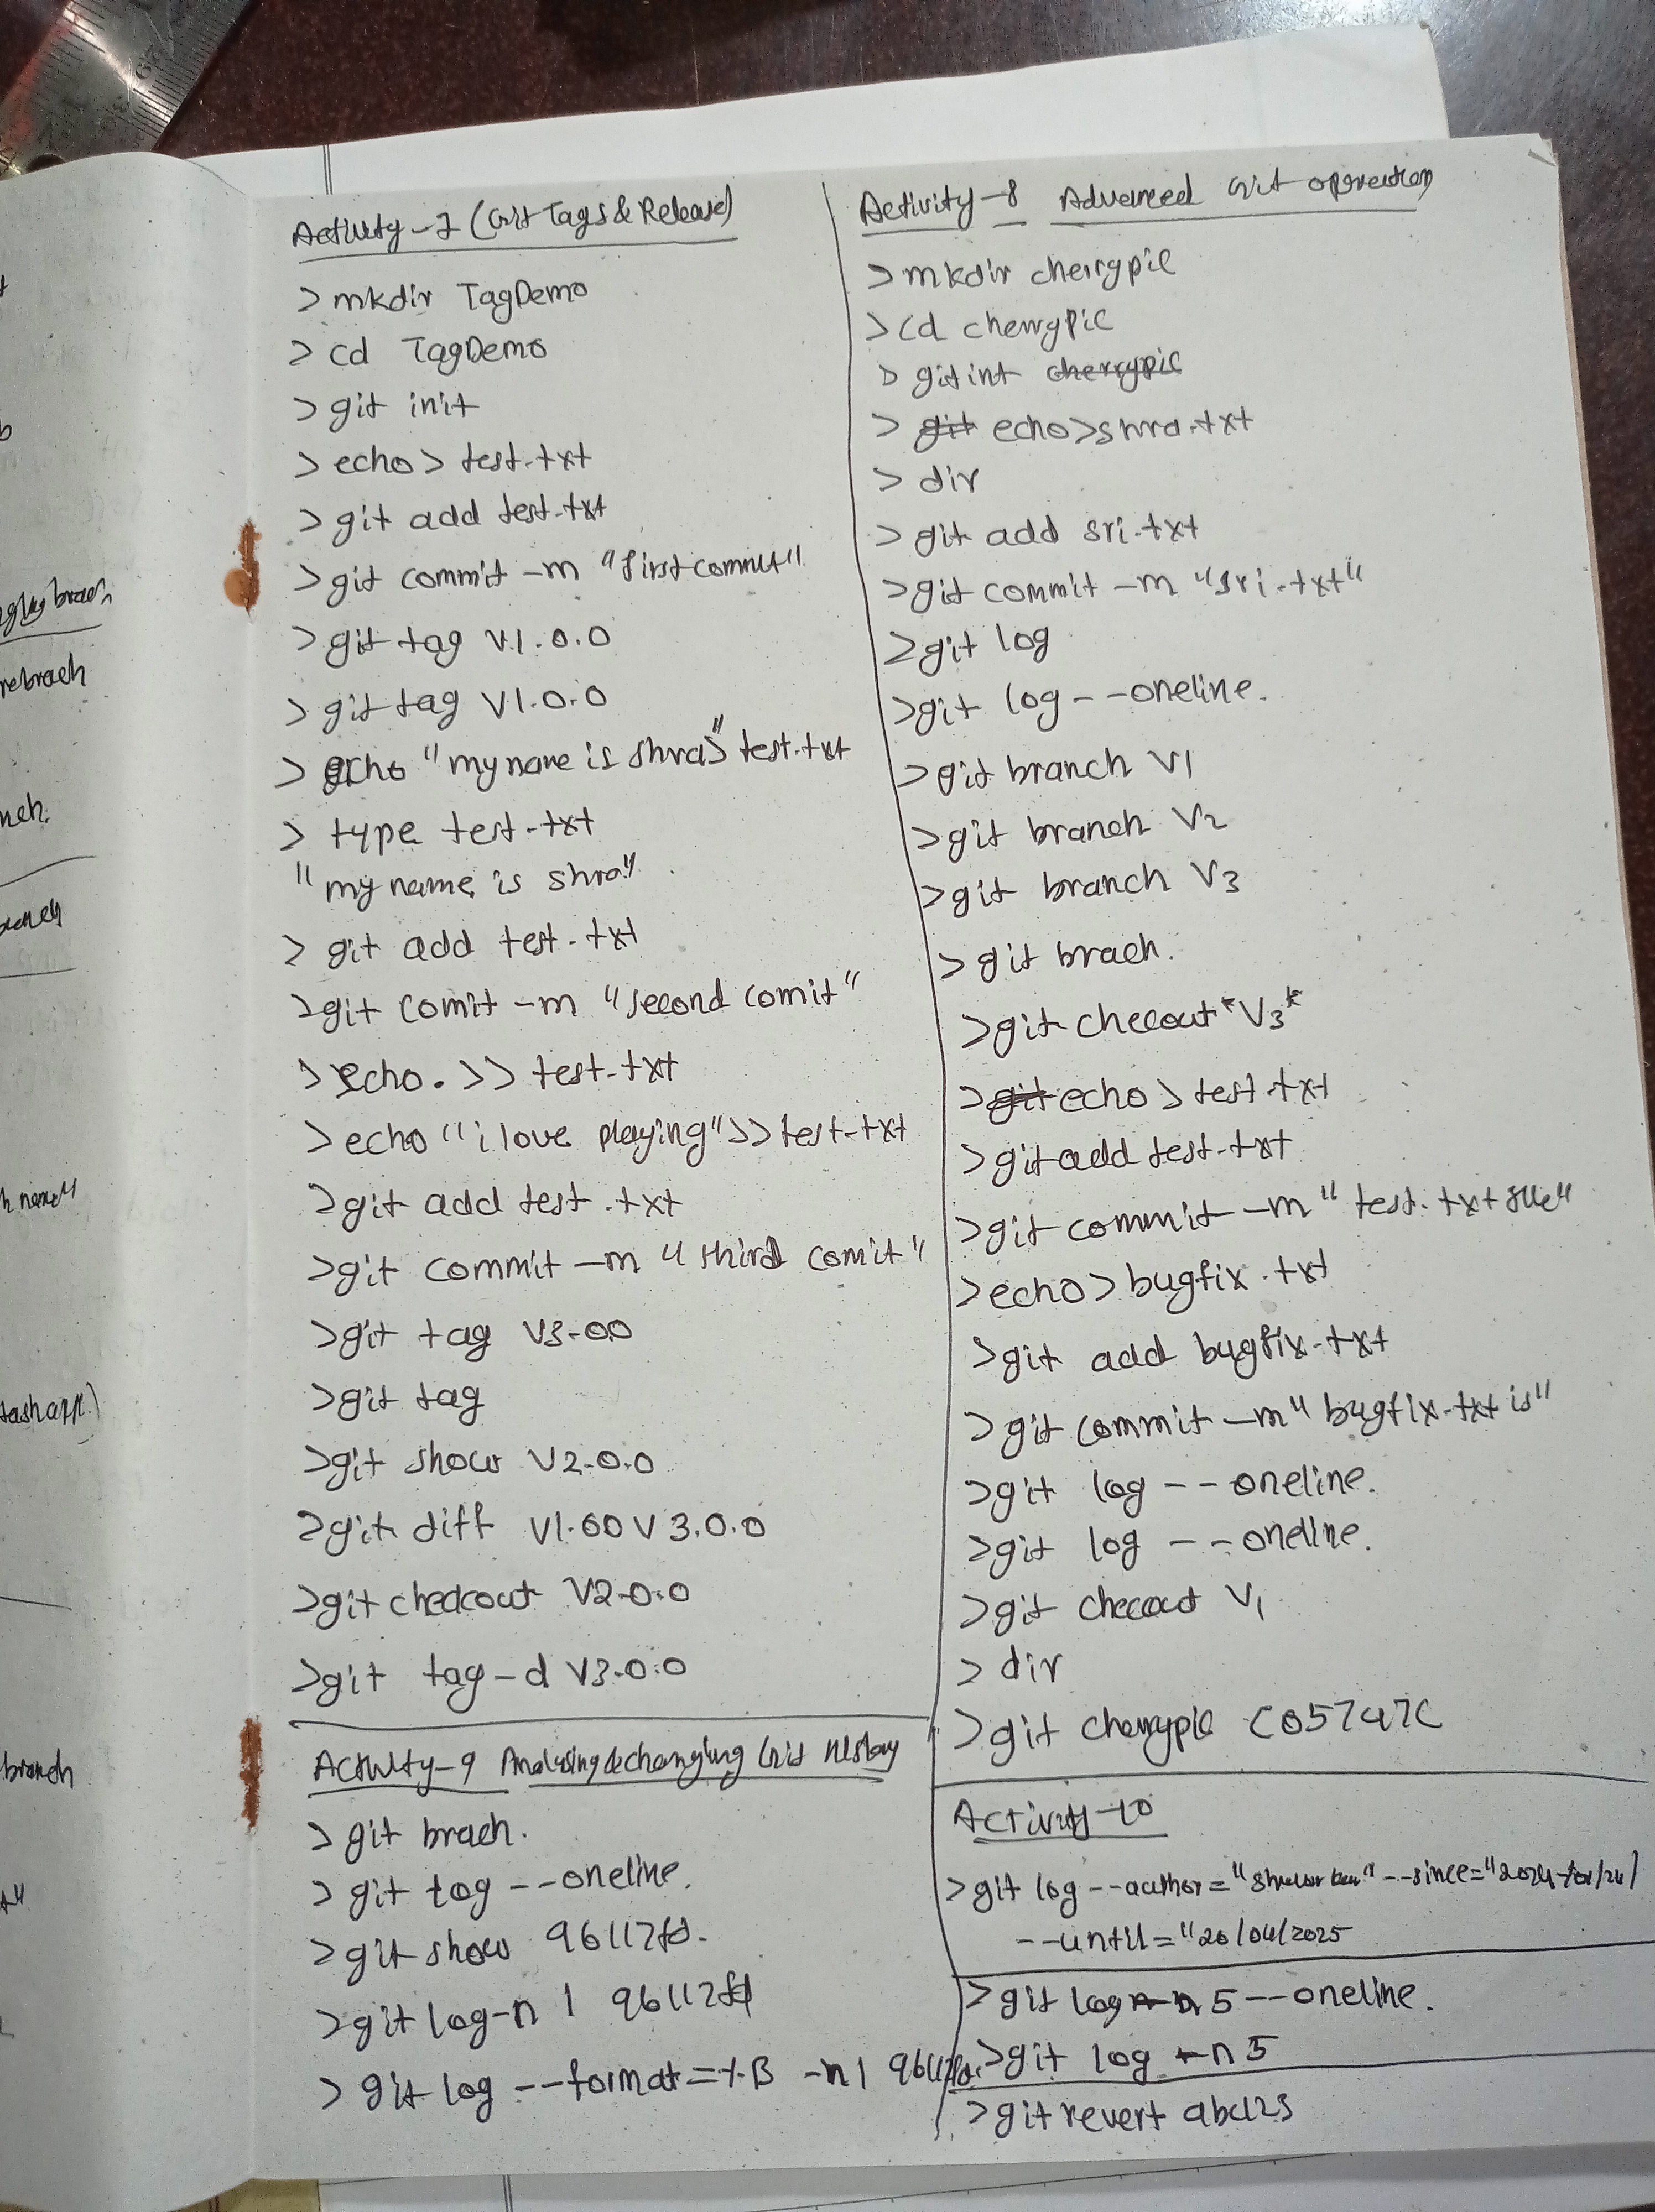 Activity-7 (Git Tags & Release)
> mkdir TagDemo
> cd TagDemo
> git init
> echo > test.txt
> git add test.txt
> git commit -m "first commit"
> git tag v1.0.0
> git tag v1.0.0
> echo "my name is shra" > test.txt
> type test.txt
"my name is shra"
> git add test.txt
> git comit -m "second comit"
> echo. >> test.txt
> echo "i love playing" >> test.txt
> git add test.txt
> git commit -m "third comit"
> git tag v3.00
> git tag
> git show v2.0.0
> git diff v1.00 v3.0.0
> git checkout v2.0.0
> git tag -d v3.0.0
Activity-9 Analysing & changing Git History
> git brach.
> git log --oneline.
> git show 96112fd.
> git log -n 1 96112fd
> git log --format=%B -n 1 96112fd.
Activity-8 Advanced Git operation
> mkdir cherrypic
> cd cherrypic
> git int cherrypic
> git echo>shra.txt
> dir
> git add sri.txt
> git commit -m "sri.txt"
> git log
> git log --oneline.
> git branch v1
> git branch v2
> git branch v3
> git brach.
> git checout *v3*
> git echo > test.txt
> git add test.txt
> git commit -m "test.txt file"
> echo > bugfix.txt
> git add bugfix.txt
> git commit -m "bugfix.txt is"
> git log --oneline.
> git log --oneline.
> git checout v1
> dir
> git cherrypic C05747C
Activity-10
> git log --author=" --since="
--until="20/04/2025
> git log -n 5 --oneline.
> git log -n 5
> git revert abc123
nch.
h name"
branch